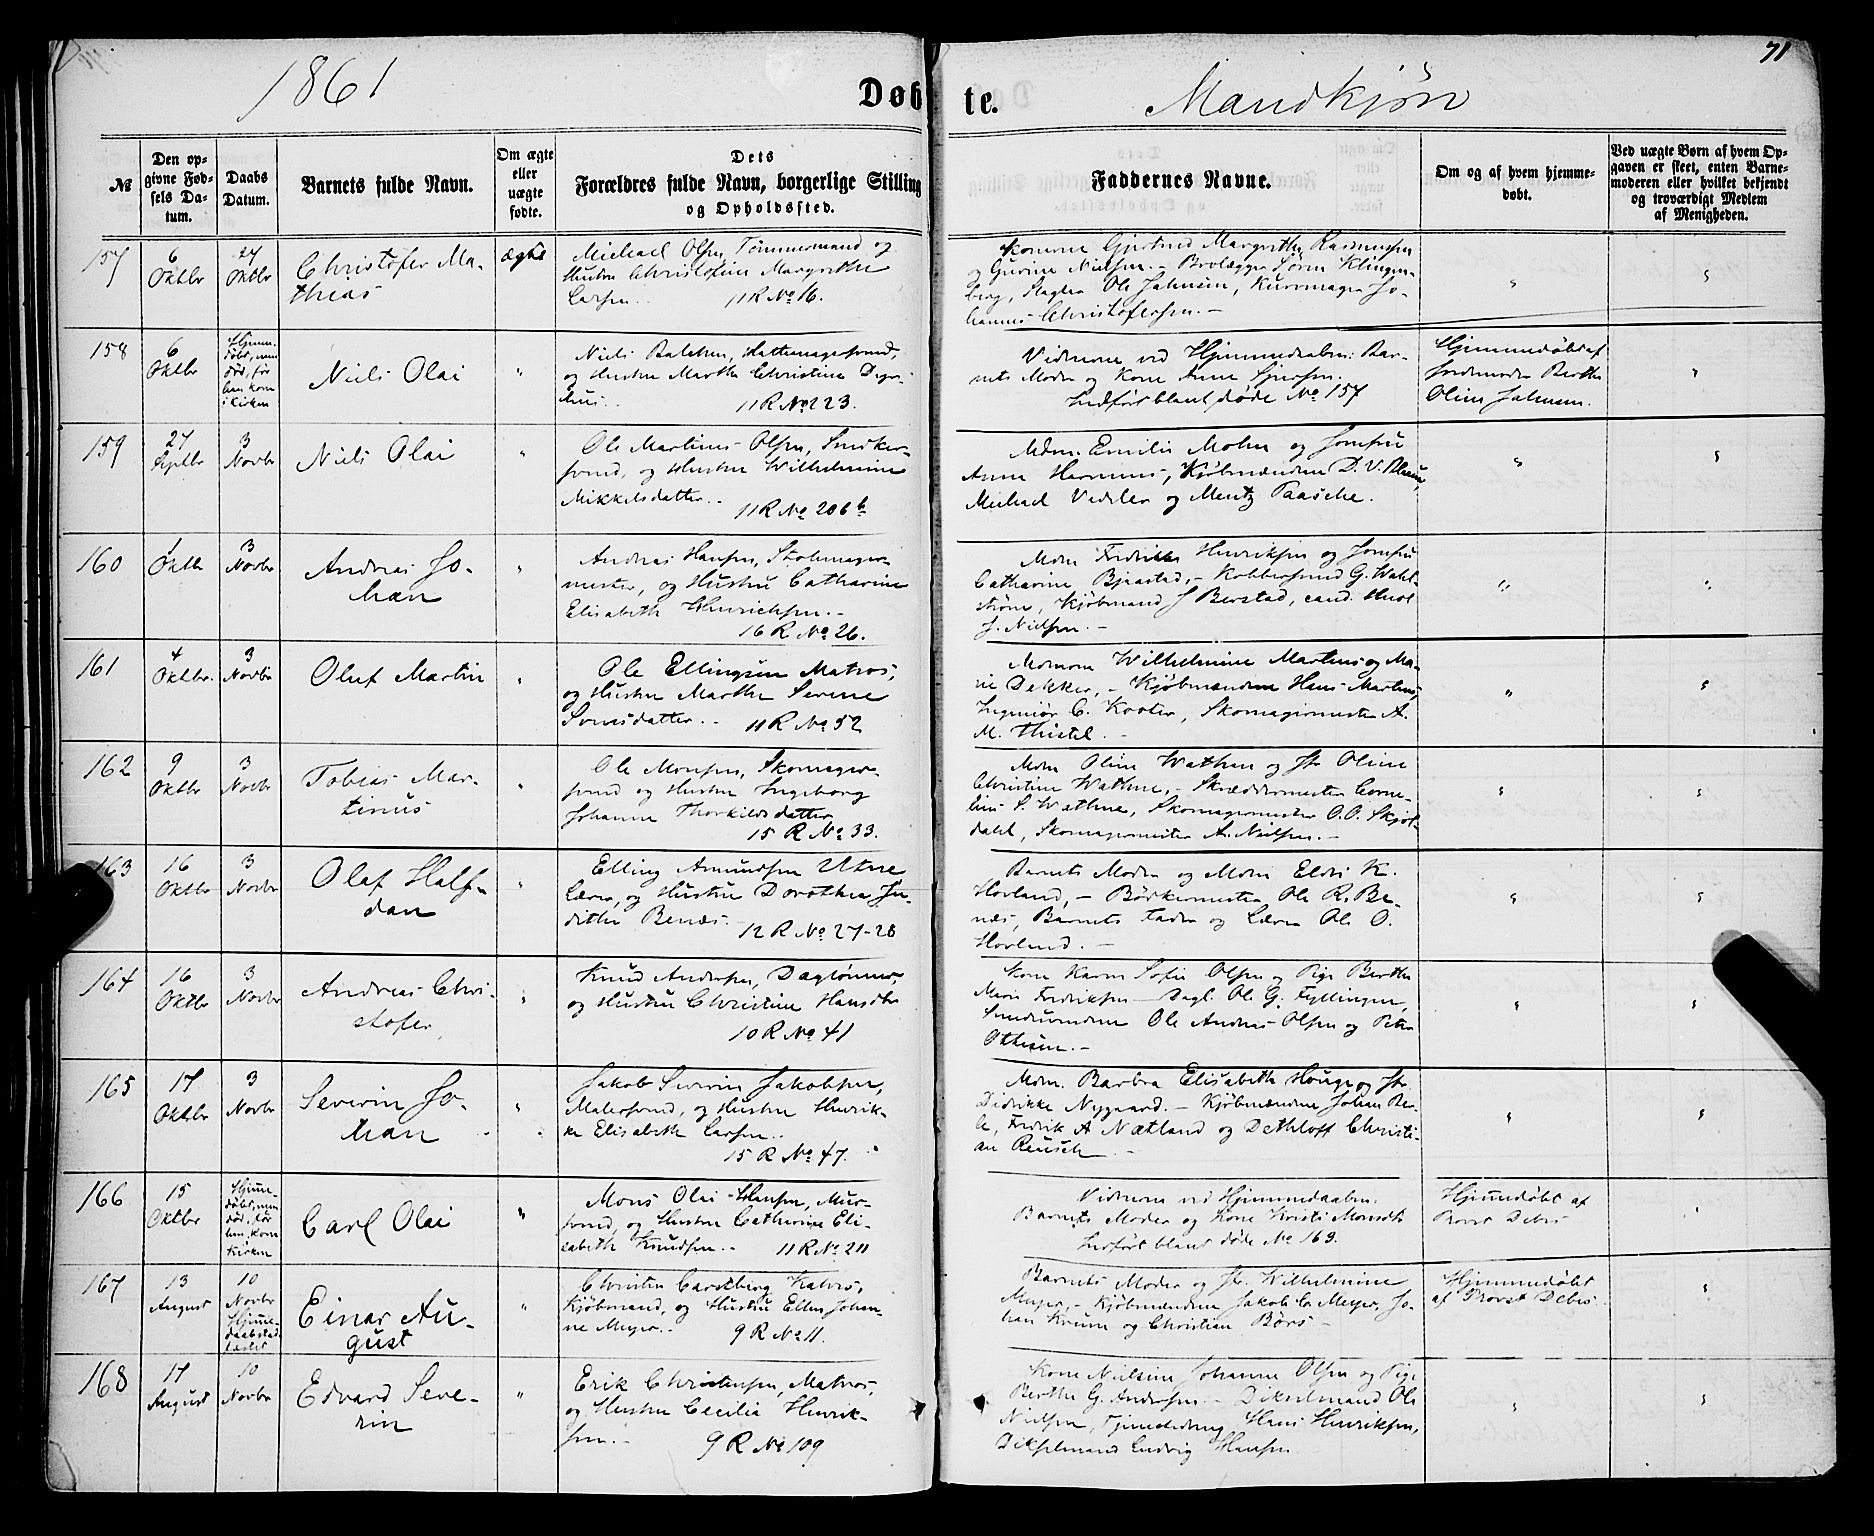 1861
Døbte.
Mandkjøn
71
№
Den opgivne Fødsels Datum.
Daabs Datum.
Barnets fulde Navn.
Om ægte eller uægte fødte.
Dets Forældres fulde Navn, borgerlige Stilling og Opholdssted.
Faddernes Navne.
Om og af hvem hjemmedøbt.
Ved uægte Børn af hvem Opgaven er skeet, enten Barnemoderen eller hvilket bekjendt og troværdigt Medlem af Menigheden.
157
6 Oktbr
27 Oktbr
Christofer Ma-
thias
ægte
Michael Olsen, Tømmermand og
Hustru Christofine Margrethe
Larsen.. 11 R No 16.
Konerne Gjertrud Margrethe Rasmussen
og Gurine Nielsen. - Brolægger Søren Klingen-
berg, Slagter Ole Johnsen, Kurvmager Jo-
hannes Christofersen. -
158
6 Oktbr
Hjemme-
døbt, men
død, før
han kom
i Kirken
Niels Olai
Niels Balchen, Hattemagersvend,
og Hustru Marthe Christine
11 R No 223.
Vidnerne ved Hjemmedaaben: Bar-
nets Moder og Kone Anne
Indført blant døde No 157
Hjemmedøbt af
Jordemoder Berthe
Oline Johnsen.
159
27 Septbr
3 Novbr
Niels Olai
Ole Martinus Olsen, Snedker-
svend, og Hustru Wilhelmine
Mikkelsdatter.. 11 R No 206 b
Mdm. Emilie Mohn og Jomfru
Anne Harmens, Kjøbmændene D. V.
Michael Vedeler og Mentz Paasche.
160
1 Oktbr
3 Novbr
Andreas Jo-
han
Andreas Hansen, Stolemager-
mester, og Hustru Catharine
Elisabeth Henrichsen. -
16 R No 26.
Mdm Fredrikke Henriksen og Jomfru
Catharine Bjrastad, - Kobbersmed G. Wahl-
strøm, Kjøbmand J Berstad, cand. theol
J. Nielsen. -
161
4 Oktbr.
3 Novbr
Oluf Martin
Ole Ellingsen Matros,
og Hustru Marthe Serine
Ivarsdatter.. 11 R No 52
Wilhelmine Martens og Ma-
rie Dekker, - Kjøbmændene Hans Martens,
Ingeniør C. Kooter, Skomagermester A.
M. Thistel. -
162
9 Oktbr
3 Novbr
Tobias Mar-
tinus
Ole Monsen, Skomager-
svend og Hustru Ingeborg
Johanne Thorkildsdatter
15 R No 33.
Mdm Oline Wathne og Jfr Oline
Christine Wathne, - Skræddermester Corne-
lius S. Wathne, Skomagermester O. O. Skjol-
dahl, Skomagermester A. Nielsen. -
163
16 Oktbr
3 Novbr
Olaf Half-
dan
Elling Amundsen Utne
Lærer, og Hustru Dorothea Ju-
dithe Benæs. - 12 R No 27-28
Barnets Moder og Mdm Eldri K.
Hovland, - Bødkermester Ole R. Be-
næs, Barnets Fader og Lærer Ole O.
Hovland. -
164
16 Oktbr
3 Novbr
Andreas Chri-
stofer
Knud Andersen, Daglønner,
og Hustru Christine Hansdtr
10 R No 41
Kone Karen Sofie Olsen og Pige Berthe
Marie Fredriksen - Dagl. Ole G. Fyllingen,
Smedsvendene Ole Andreas Olsen og Peter
Ottesen. -
165
17 Oktbr
3 Novbr
Severin Jo-
han
Jakob Severin Jakobsen,
Malersvend, og Hustru Henrik-
ke Elisabeth Larsen..
15 R No 47.
Mdm. Barbra Elisabeth Houge og Jfr.
Didrikke Nygaard. - Kjøbmændene Johan Ber-
le, Fredrik A Nætland og Dethloff Christi-
an Reusch. -
166
15 Oktbr
Hjemme-
døbt, men
død, før
han kom i
Kirken
Carl Olai
Mons Olai Hansen, Mur-
svend, og Hustru Catharine Eli-
sabeth Knudsen.. 11 R No 211
Vidnerne ved Hjemmedaaben:
Barnets Moder og Kone Kristi Monsdtr
Indført blant døde No 169.
Hjemmedøbt af
Provst Debes
167
13 August
10 Novbr
Hjemme-
daab stad-
fæstet
Einar Au-
gust
Christen Carstberg Kahrs,
Kjøbmand, og Hustru Ellen Johan-
ne Meyer.. 9 R No 11.
Barnets Moder og Jfr. Wilhelmine
Meyer, - Kjøbmændene Jakob C. Meyer, Jo-
han Krum og Christian Børs -
Hjemmedøbt
af Provst Debes
168
17 August
10 Novbr
Edvard Seve-
rin
Erik Christensen, Matros,
og Hustru Cecilia Henrik-
sen.. 9 R No 109
Kone Nielsine Johanne Olsen og Pige
Berthe G. Andersen. - Dikselmand Ole
Nielsen, Tjenestedreng Hans Henriksen,
Dikselmand Ludvig Hansen